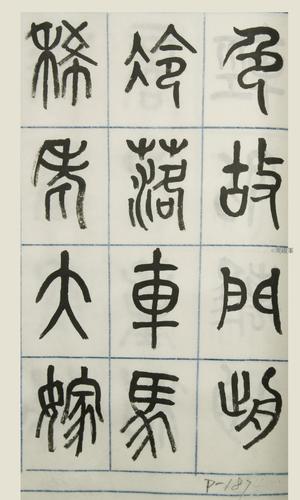 色故門前
冷落車馬
稀老大嫁
P-187